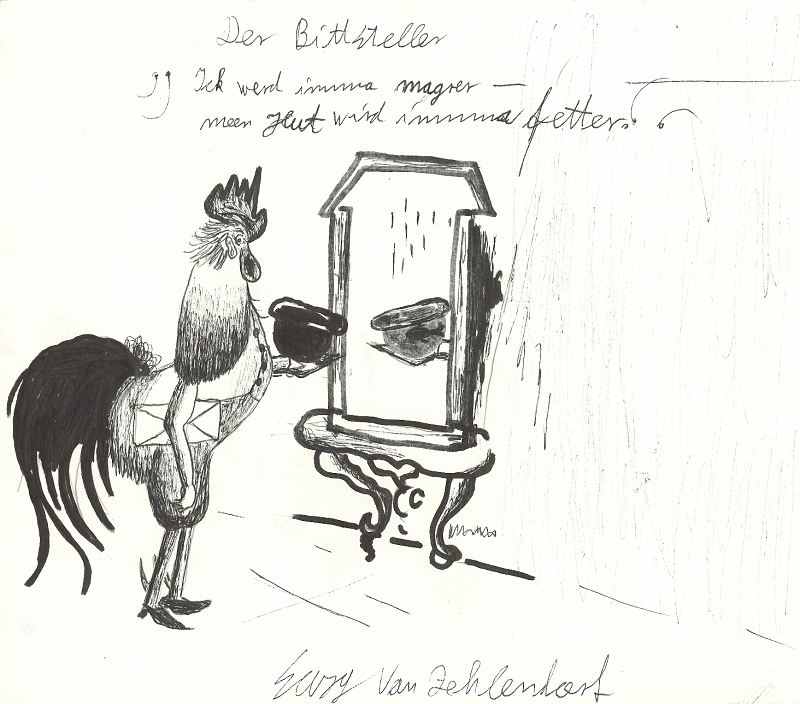 Der Bittsteller
„ Ick werd imma magrer —
meen Hut wird imma fetter. "
van Zehlendorf